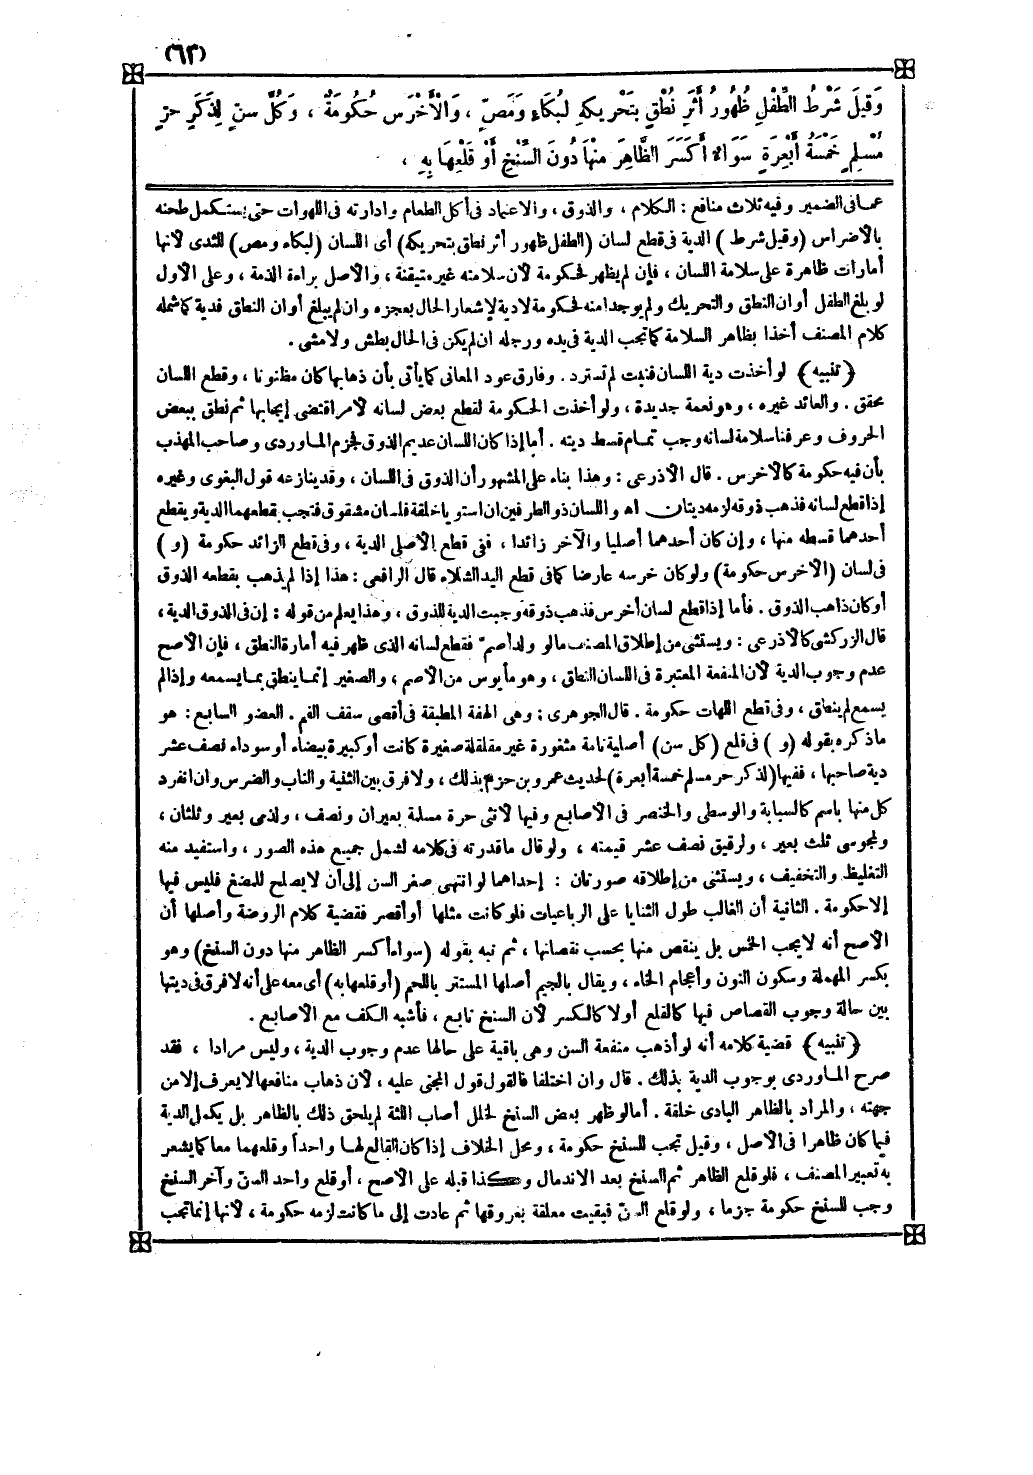 (٦٣)
وَقِيلَ شَرْطُ الطِّفْلِ ظُهُورُ أَثَرِ نُطْقٍ بِتَحْرِيكِهِ لِبُكَاءٍ وَمَصٍّ ، وَالْأَخْرَسِ حُكُومَةٌ ، وَكُلُّ سِنٍّ لِذَكَرٍ حُرٍّ
مُسْلِمٍ خَمْسَةُ أَبْعِرَةٍ سَوَاءٌ أَكَسَرَ الظَّاهِرَ مِنْهَا دُونَ السِّنْخِ أَوْ قَلَعَهَا بِهِ ،
عما فى الضمير وفيه ثلاث منافع : الكلام ، والذوق ، والاعتماد فى أكل الطعام وادارته فى اللهوات حتى يستكمل طحنه
بالأضراس (وقيل شرط) الدية فى قطع لسان (الطفل ظهور أثر نطق بتحريكه) أى اللسان (لبكاء ومص) للثدى لأنها
أمارات ظاهرة على سلامة اللسان ، فإن لم يظهر فحكومة لأن سلامته غير متيقنة ، والأصل براءة الذمة ، وعلى الأول
لو بلغ الطفل أوان النطق والتحريك ولم يوجدا منه فحكومة لادية لإشعار الحال بعجزه وان لم يبلغ أوان النطق فدية كما شمله
كلام المصنف أخذا بظاهر السلامة كما تجب الدية فى يده ورجله ان لم يكن فى الحال بطش ولا مشى .
(تنبيه) لو أخذت دية اللسان فنبت لم تسترد . وفارق عود المعانى كما يأتى بأن ذهابها كان مظنونا ، وقطع اللسان
محقق . والعائد غيره ، وهو نعمة جديدة ، ولو أخذت الحكومة لقطع بعض لسانه لأمر اقتضى إيجابها ثم نطق ببعض
الحروف وعرفنا سلامة لسانه وجب تمام قسط ديته . أما إذا كان اللسان عديم الذوق فجزم الماوردى وصاحب المهذب
بأن فيه حكومة كالأخرس . قال الأذرعى : وهذا بناء على المشهور أن الذوق فى اللسان ، وقد ينازعه قول البغوى وغيره
إذا قطع لسانه فذهب ذوقه لزمه ديتان اه واللسان ذو الطرفين ان استويا خلقة فلسان مشقوق فتجب بقطعهما الدية وبقطع
أحدهما قسطه منها ، وإن كان أحدهما أصليا والآخر زائدا ، ففى قطع الأصلى الدية ، وفى قطع الزائد حكومة (و)
فى لسان (الأخرس حكومة) ولو كان خرسه عارضا كما فى قطع اليد الشلاء قال الرافعى : هذا إذا لم يذهب بقطعه الذوق
أو كان ذاهب الذوق . فأما إذا قطع لسان أخرس فذهب ذوقه وجبت الدية للذوق ، وهذا يعلم من قوله : إن فى الذوق الدية ،
قال الزركشى كالأذرعى : ويستثنى من إطلاق المصنف مالو ولد أصم فقطع لسانه الذى ظهر فيه أمارة النطق ، فإن الأصح
عدم وجوب الدية لأن المنفعة المعتبرة فى اللسان النطق ، وهو مأيوس من الأصم ، والصغير إنما ينطق بما يسمعه وإذا لم
يسمع لم ينطق ، وفى قطع اللهات حكومة . قال الجوهرى : وهى الهنة المطبقة فى أقصى سقف الفم . العضو السابع : هو
ما ذكره بقوله (و) فى قلع (كل سن) أصلية تامة مثغورة غير مقلقلة صغيرة كانت أو كبيرة بيضاء أو سوداء نصف عشر
دية صاحبها ، ففيها (لذكر حر مسلم خمسة أبعرة) لحديث عمرو بن حزم بذلك ، ولا فرق بين الثنية والناب والضرس وان انفرد
كل منها باسم كالسبابة والوسطى والخنصر فى الأصابع وفيها لأنثى حرة مسلمة بعيران ونصف ، ولذمى بعير وثلثان ،
ولمجوسى ثلث بعير ، ولرقيق نصف عشر قيمته ، ولو قال ما قدرته فى كلامه لشمل جميع هذه الصور ، واستفيد منه
التغليظ والتخفيف ، ويستثنى من إطلاقه صورتان : إحداهما لو انتهى صغر السن إلى أن لا يصلح للمضغ فليس فيها
إلا حكومة . الثانية أن الغالب طول الثنايا على الرباعيات فلو كانت مثلها أو أقصر فقضية كلام الروضة وأصلها أن
الأصح أنه لا يجب الخمس بل ينقص منها بحسب نقصانها ، ثم نبه بقوله (سواء أكسر الظاهر منها دون السنخ) وهو
بكسر المهملة وسكون النون وأعجام الخاء ، ويقال بالجيم أصلها المستتر باللحم (أو قلعها به) أى معه على أنه لا فرق فى ديتها
بين حالة وجوب القصاص فيها كالقلع أولا كالكسر لأن السنخ تابع ، فأشبه الكف مع الأصابع .
(تنبيه) قضية كلامه أنه لو أذهب منفعة السن وهى باقية على حالها عدم وجوب الدية ، وليس مرادا ، فقد
صرح الماوردى بوجوب الدية بذلك . قال وان اختلفا فالقول قول المجنى عليه ، لأن ذهاب منافعها لا يعرف إلا من
جهته ، والمراد بالظاهر البادى خلقة . أما لو ظهر بعض السنخ لخلل أصاب اللثة لم يلحق ذلك بالظاهر بل يكمل الدية
فيما كان ظاهرا فى الأصل ، وقيل تجب للسنخ حكومة ، ومحل الخلاف إذا كان القالع لهما واحدا وقلعهما معا كما يشعر
به تعبير المصنف ، فلو قلع الظاهر ثم السنخ بعد الاندمال وهكذا قبله على الأصح ، أو قلع واحد السن وآخر السنخ
وجب للسنخ حكومة جزما ، ولو قلع السن فبقيت معلقة بعروقها ثم عادت إلى ما كانت لزمه حكومة ، لأنها إنما تجب